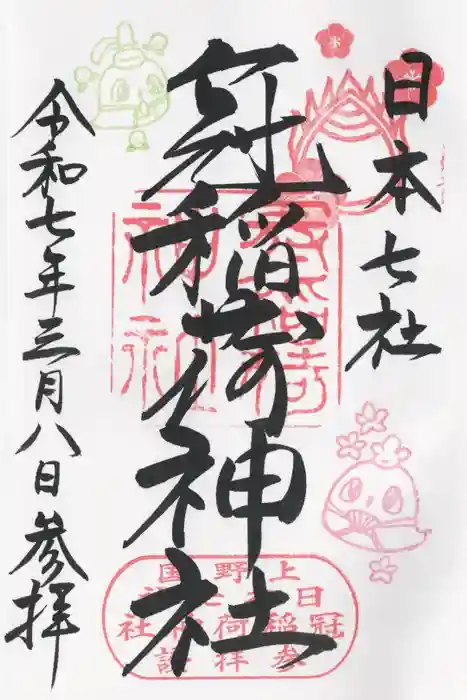 日本七社
冠稲荷神社
令和七年三月八日参拝
上野国
日本七社
冠稲荷神社
参拝証